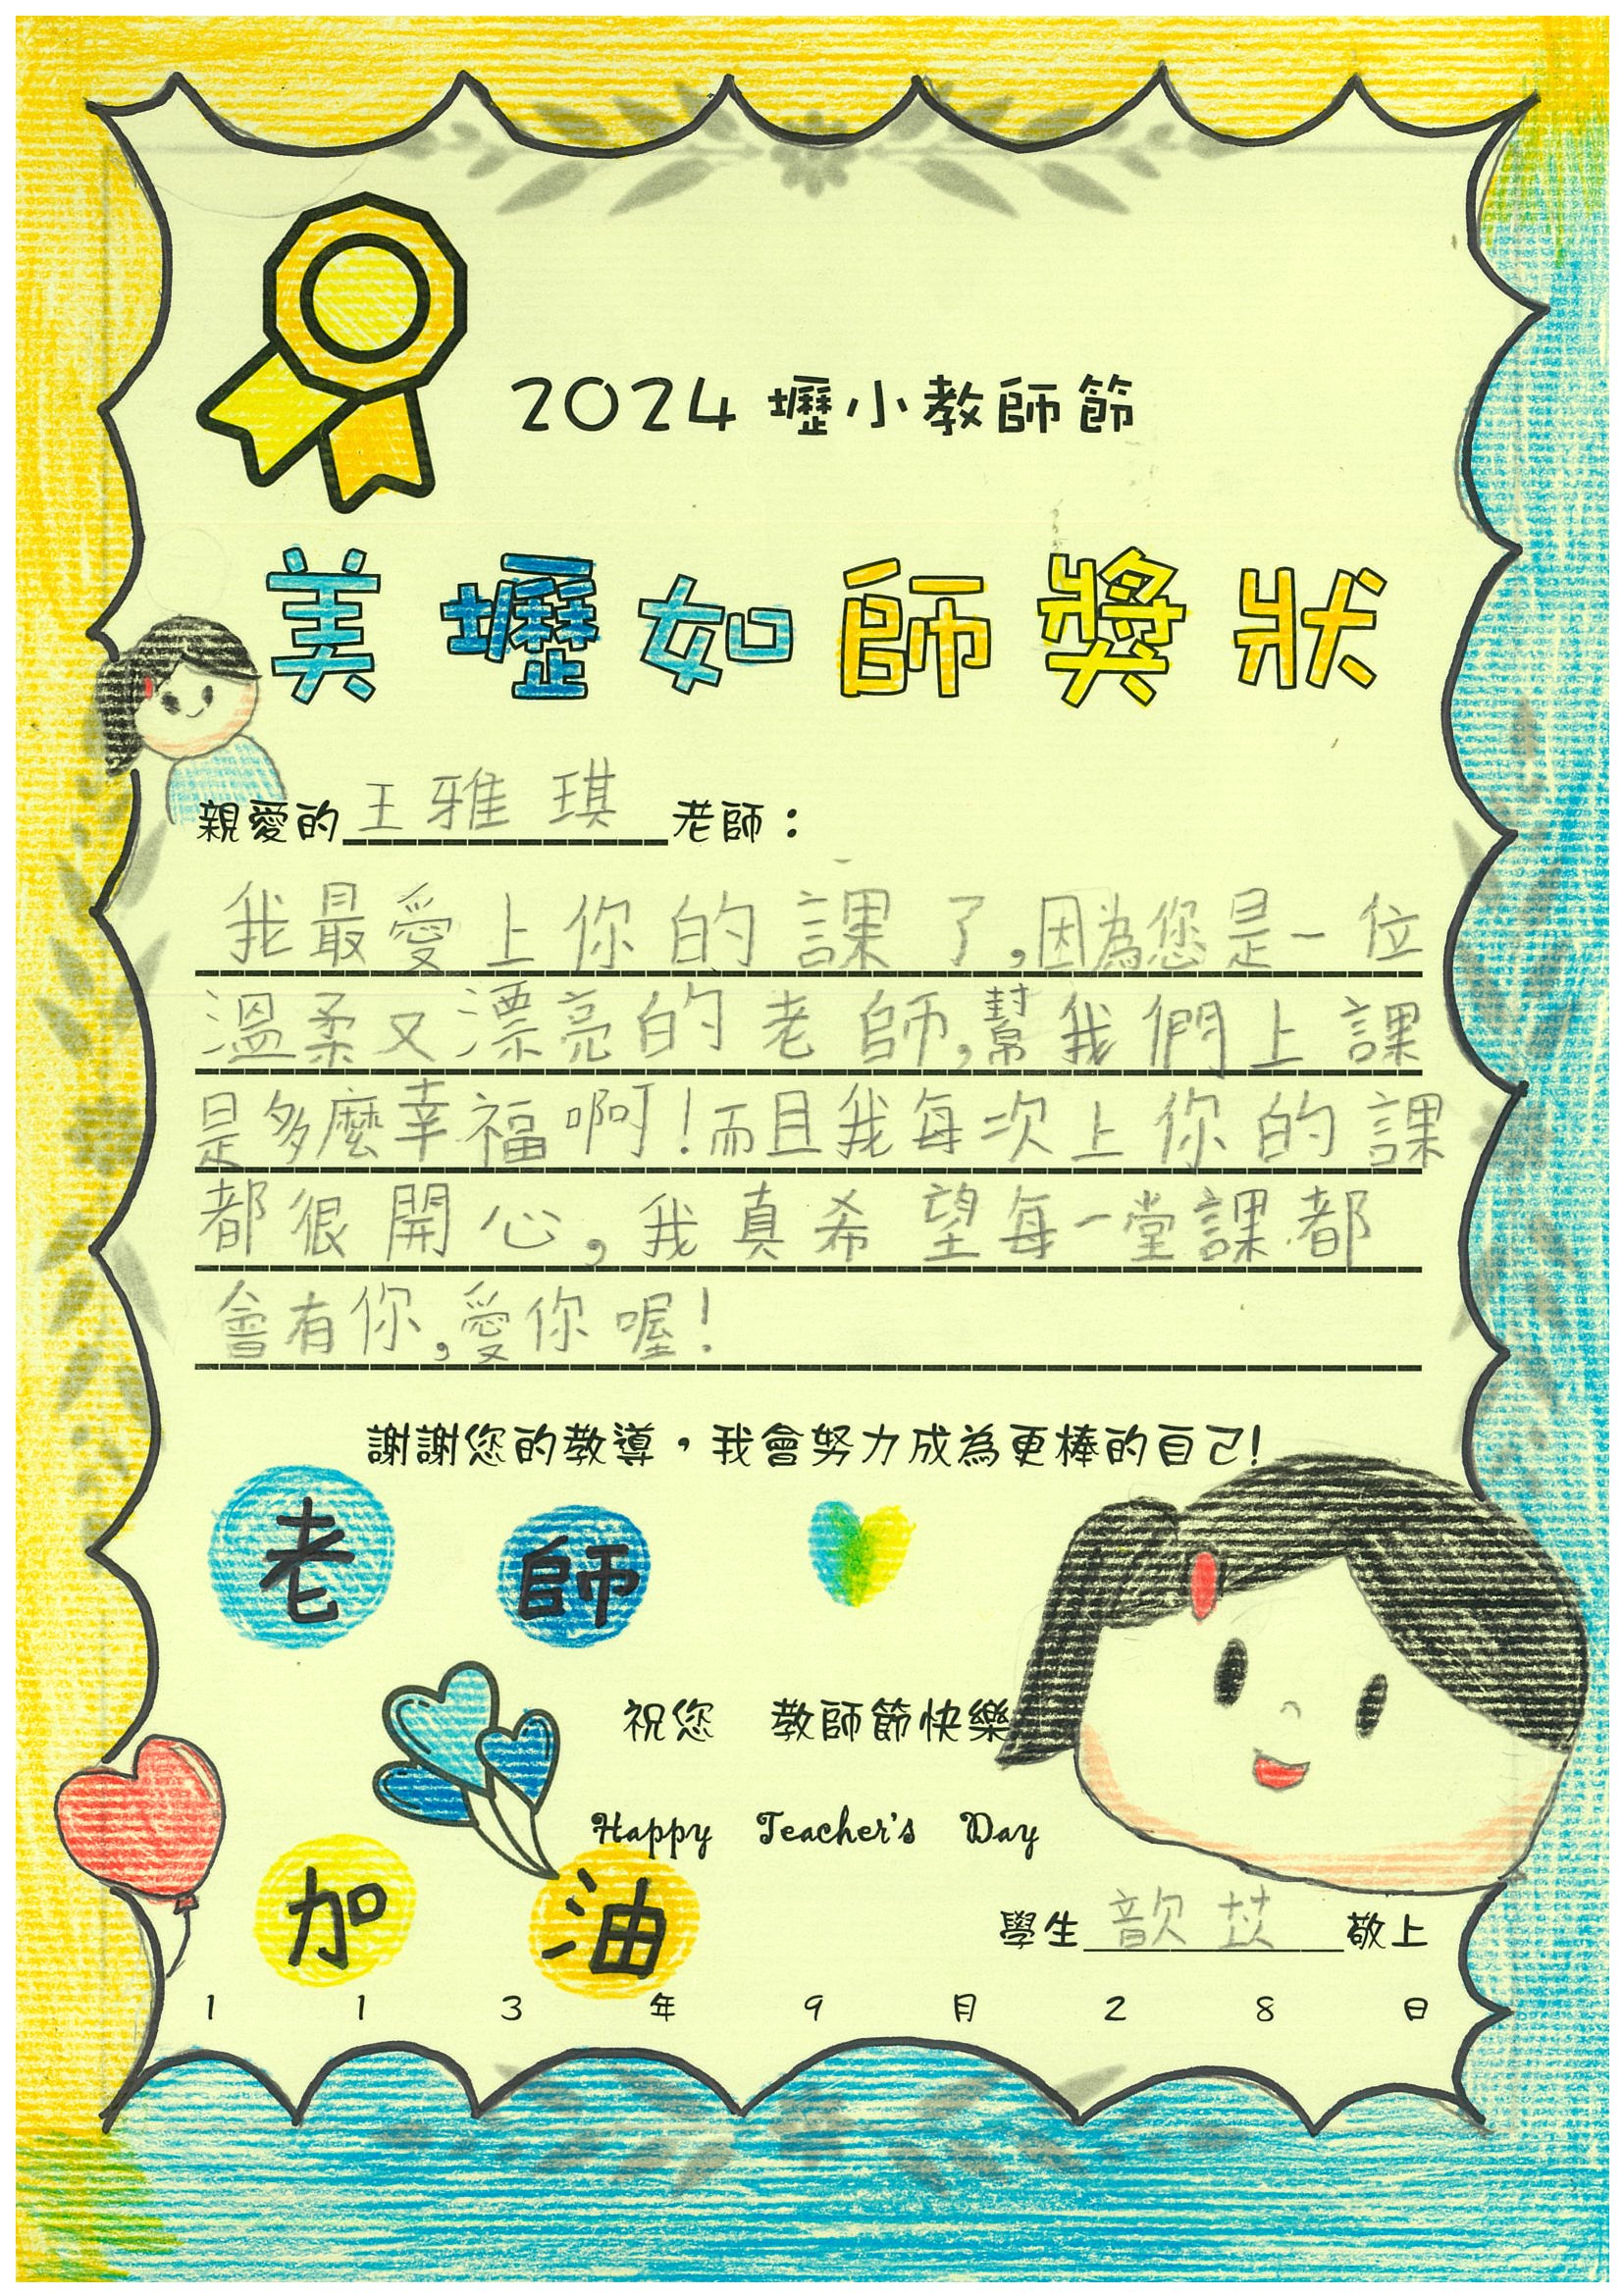 2024 壢小教師節
美壢如師獎狀
親愛的王雅琪老師：
我最愛上你的課了,因為您是一位
溫柔又漂亮的老師,幫我們上課
是多麼幸福啊!而且我每次上你的課
都很開心,我真希望每一堂課都
會有你,愛你喔!
謝謝您的教導，我會努力成為更棒的自己!
老師
祝您 教師節快樂
Happy Teacher's Day
加油
學生歆苡敬上
113年9月28日